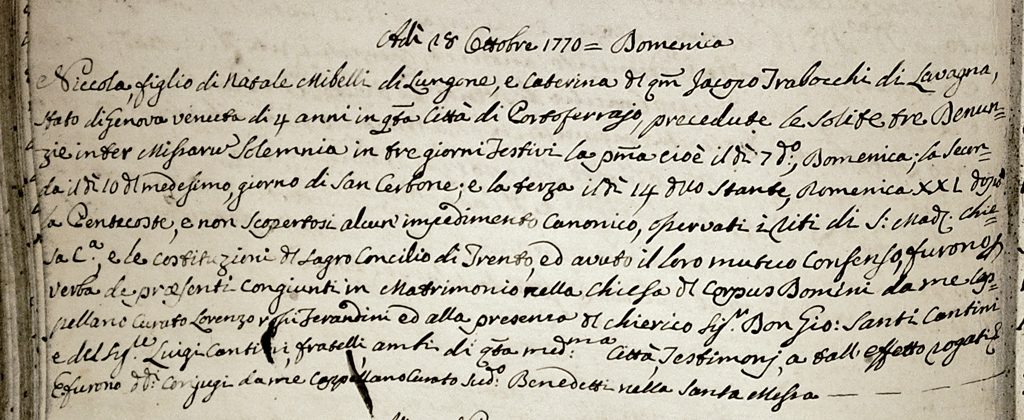 Adì 28 Ottobre 1770 = Domenica
Niccola, figlio di Natale Mibelli di Lungone, e Caterina del qm̃ Jacopo Trabocchi di Lavagna,
stato di Genova venuta di 4 anni in qta Città di Portoferrajo, precedute le solite tre Denun-
zie inter Missarũ Solemnia in tre giorni Festivi la pm̃a cioè il dì 7 do., Domenica; la Secon-
da il dì 10 del medesimo, giorno di San Cerbone; e la terza il dì 14 dello Stante, Domenica XXI dopo
la Pentecoste, e non Scopertosi alcun' impedimento Canonico, osservati i Riti di S: Mad.e chie-
sa C.a, e le costituzioni del Sagro Concilio di Trento, ed avuto il loro mutuo Consenso, furono p
verba de præsenti Congiunti in Matrimonio nella Chiesa del Corpus Domini da me Cap-
pellano Curato Lorenzo Ferandini ed alla presenza del chierico Sig.r Don Gio: Santi Cantini
e del Sig.re Luigi Cantini, fratelli, ambi di qta med.ma Città, Testimonj, a tall' effetto rogati
E furono dd.i Conjugi da me Cappellano Curato Sud.o Benedetti nella Santa Messa